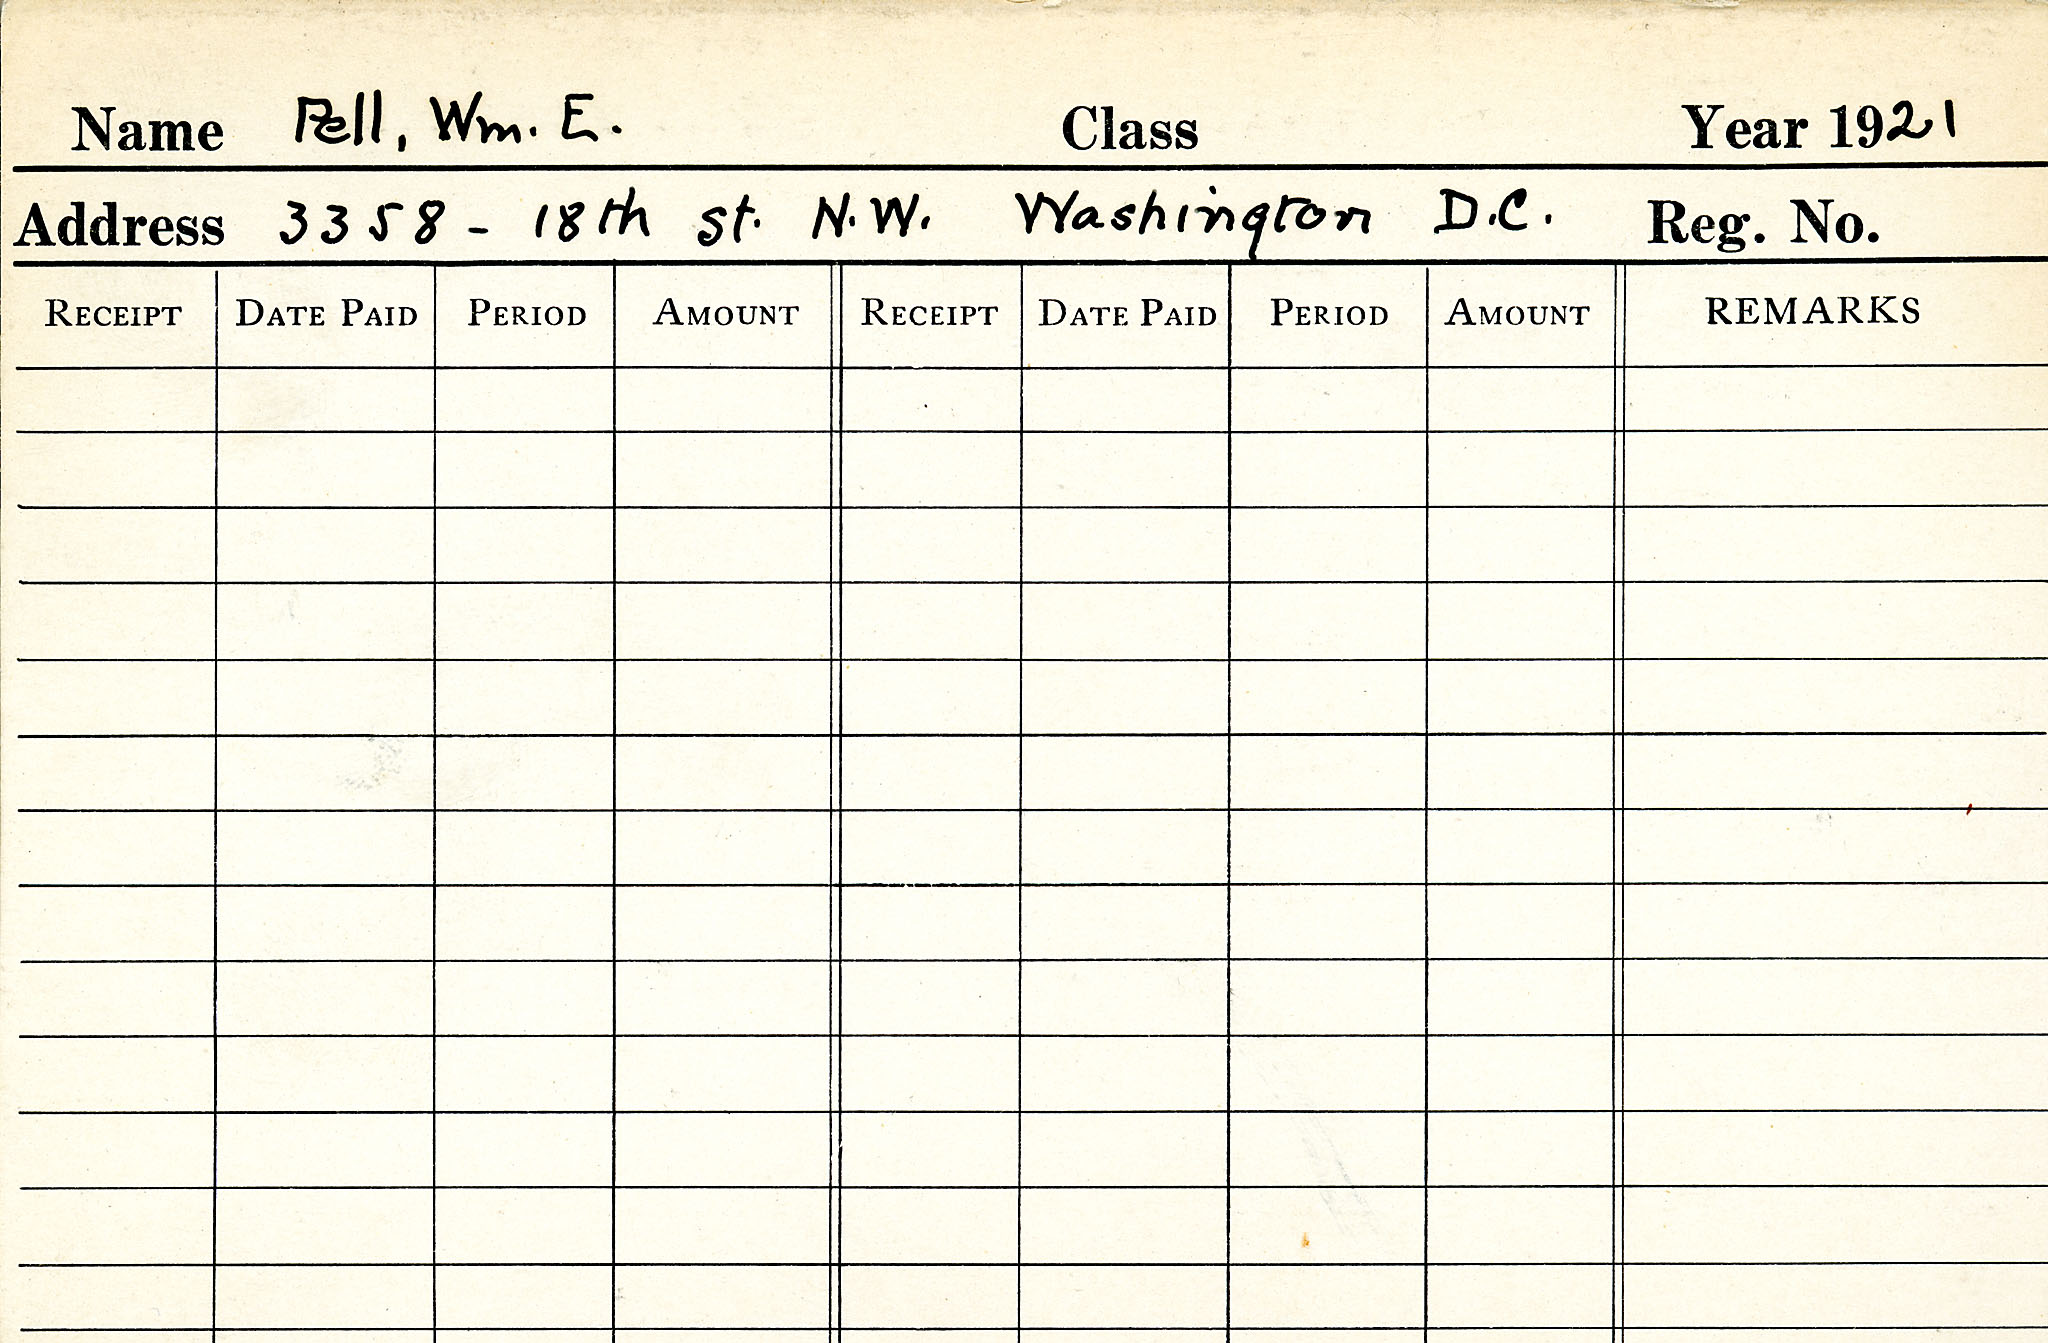 Name Pell, Wm. E. Class Year 1921
Address 3358 - 18th st. N.W. Washington D.C. Reg. No.
RECEIPT DATE PAID PERIOD AMOUNT RECEIPT DATE PAID PERIOD AMOUNT REMARKS